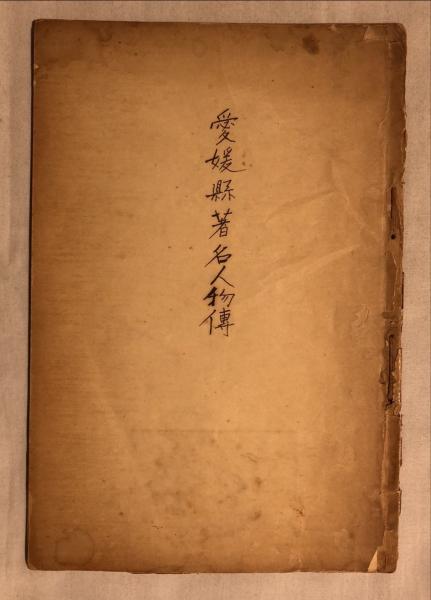 愛媛縣著名人物傳